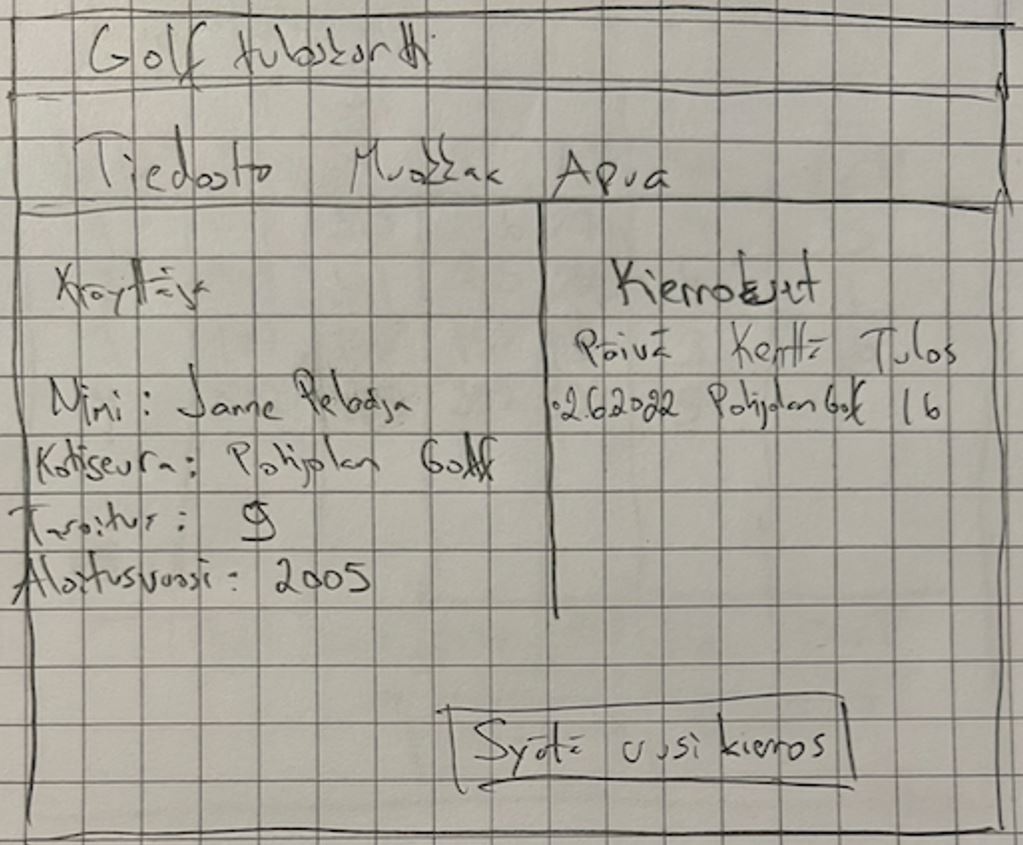 Golf tuloskortti
Tiedosto Muokkaa Apua
Käyttäjä
Nimi: Janne Pelaaja
Kotiseura: Pohjolan Golf
Tasoitus: 9
Aloitusvuosi: 2005
Kierrokset
Päivä Kenttä Tulos
2.6.2022 Pohjolan Golf 16
Syötä uusi kierros